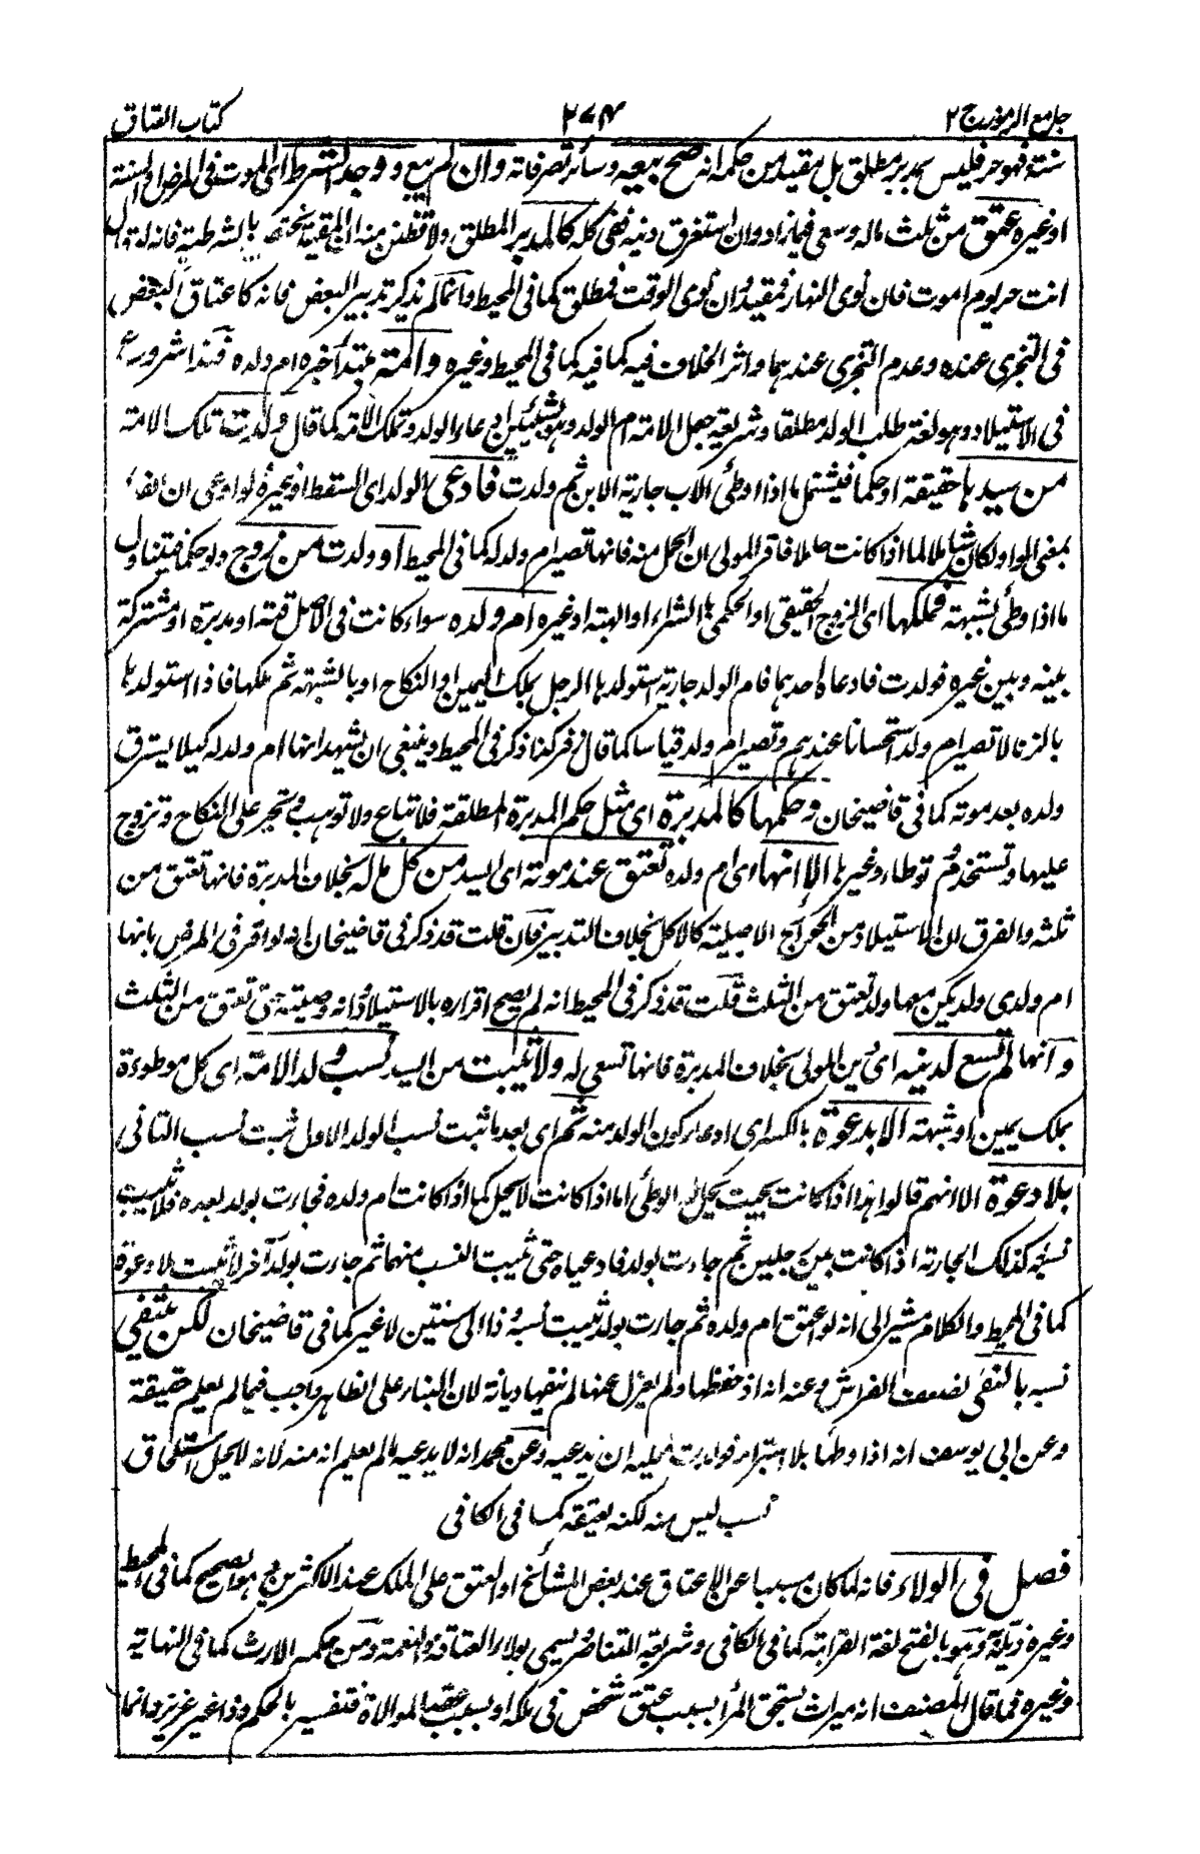 جامع الرموز ج ٢
٢٧٤
كتاب العتاق
سنة فهو حر فليس بمدبر مطلق بل مقيد من حكمه انه صح بيعه وسائر تصرفاته وان لم يبع ووجد الشرط اى الموت فى المرض او السنة
او غيره عتق من ثلث ماله وسعى فيما زاد وان استغرق دينه ففى كله كالمدبر المطلق ولا تظنن منه ان المقيد يختص بالشرطية فانه لو قال
انت حر يوم اموت فان نوى النهار فمقيد وان نوى الوقت فمطلق كما فى المحيط وانما لم يذكر تدبير البعض فانه كاعتاق البعض
فى التجزى عنده وعدم التجزى عندهما واثر الخلاف فيه كما فيه كما فى المحيط وغيره وامة مبتدأ خبره ام ولده فهذا شروع
فى الاستيلاد وهو لغة طلب الولد مطلقا وشريعة جعل الامة ام الولد وهو بشيئين ادعاء الولد وتملك الامة كما قال ولدت تلك الامة
من سيدها حقيقة او حكما فيشتمل ما اذا وطئ الاب جارية الابن ثم ولدت فادعى الولد اى السقط او غيره لو ادعى ان الفاء
بمعنى الواو لكان شاملا لما اذا كانت حاملا فاقر المولى ان الحمل منه فانها تصير ام ولد له كما فى المحيط او ولدت من زوج ولو حكما فيتناول
ما اذا وطئ بشبهة فملكها اى الزوج الحقيقى او الحكمى بالشراء او الهبة او غيره ام ولده سواء كانت فى الاصل قنة او مدبرة او مشتركة
بينه وبين غيره فولدت فادعاه احدهما فام الولد جارية استولدها الرجل بملك اليمين او النكاح او بالشبهة ثم ملكها فاذا استولدها
بالزنا لا تصير ام ولد استحسانا عندهم وتصير ام ولد قياسا كما قال زفر كذا ذكر فى المحيط وينبغى ان يشهد انها ام ولد له كيلا يسترق
ولده بعد موته كما فى قاضيخان وحكمها كالمدبرة اى مثل حكم المدبرة المطلقة فلا تباع ولا توهب وتجبر على النكاح وتزوج
عليها وتستخدم وتوطأ وغيرها الا انها اى ام ولده تعتق عند موته اى السيد من كل ماله بخلاف المدبرة فانها تعتق من
ثلثه والفرق ان الاستيلاد من الحوائج الاصلية كالاكل بخلاف التدبير فان قلت قد ذكر فى قاضيخان انه لو اقر فى المرض بانها
ام ولدى ولم يكن معها ولد تعتق من الثلث قلت قد ذكر فى المحيط انه لم يصح اقراره بالاستيلاد وانه وصيته حتى تعتق من الثلث
وانها لم تسع لدينه اى دين المولى بخلاف المدبرة فانها تسعى له ولا يثبت من السيد نسب ولد الامة اى كل موطوءة
بملك يمين او شبهته الا بدعوة بالكسر اى ادعاء كون الولد منه ثم اى بعد ما ثبت نسب الولد الاول ثبت نسب الثانى
بلا دعوة الا انهم قالوا هذا اذا كانت بحيث يحل له الوطئ اما اذا كانت لا يحل كما اذا كانت ام ولده فجاءت بولد بعده فلا يثبت
نسبه كذلك الجارية اذا كانت بين رجلين ثم جاءت بولد فادعياه حتى ثبت النسب منهما ثم جاءت بولد آخر لا يثبت بلا دعوة
كما فى المحيط والكلام مشير الى انه لو اعتق ام ولده ثم جاءت بولد ثبت نسبه وذا الى سنتين لا غير كما فى قاضيخان لكن ينتفى
نسبه بالنفى لضعف الفراش وعنه انه اذ حفظها ولم يعزل عنها لم ينفها ديانة لان البناء على الظاهر واجب فيما لم يعلم حقيقة
وعن ابى يوسف انه اذا وطئها بلا استبراء فولدت فعليه ان يدعيه وعن محمد انه لا يدعيه مالم يعلم انه منه لانه لا يحل استلحاق
نسب ليس منه لكنه يعتقه كما فى الكافى
فصل فى الولاء فانه لما كان مسببا عن الاعتاق عند بعض المشائخ او العتق على الملك عند الاكثرين وهو الصحيح كما فى المحيط
وغيره ذيله وهو بالفتح لغة القرابة كما فى الكافى وشريعة التناصر يسمى بولاء العتاقة والنعمة ومن حكمه الارث كما فى النهاية
وغيره فما قال المصنف انه ميراث يستحق المرأ بسبب عتق شخص فى ملكه او بسبب عقد الموالاة فتفسير بالحكم وذا غير عزيز وانما